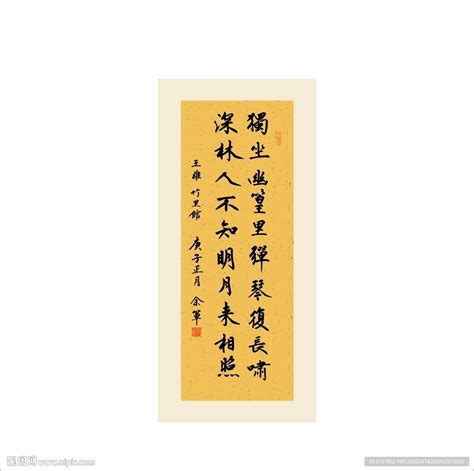 獨坐幽篁里彈琴復長嘯
深林人不知明月来相照
王維竹里館 庚子正月 余軍
昵图网 www.nipic.com